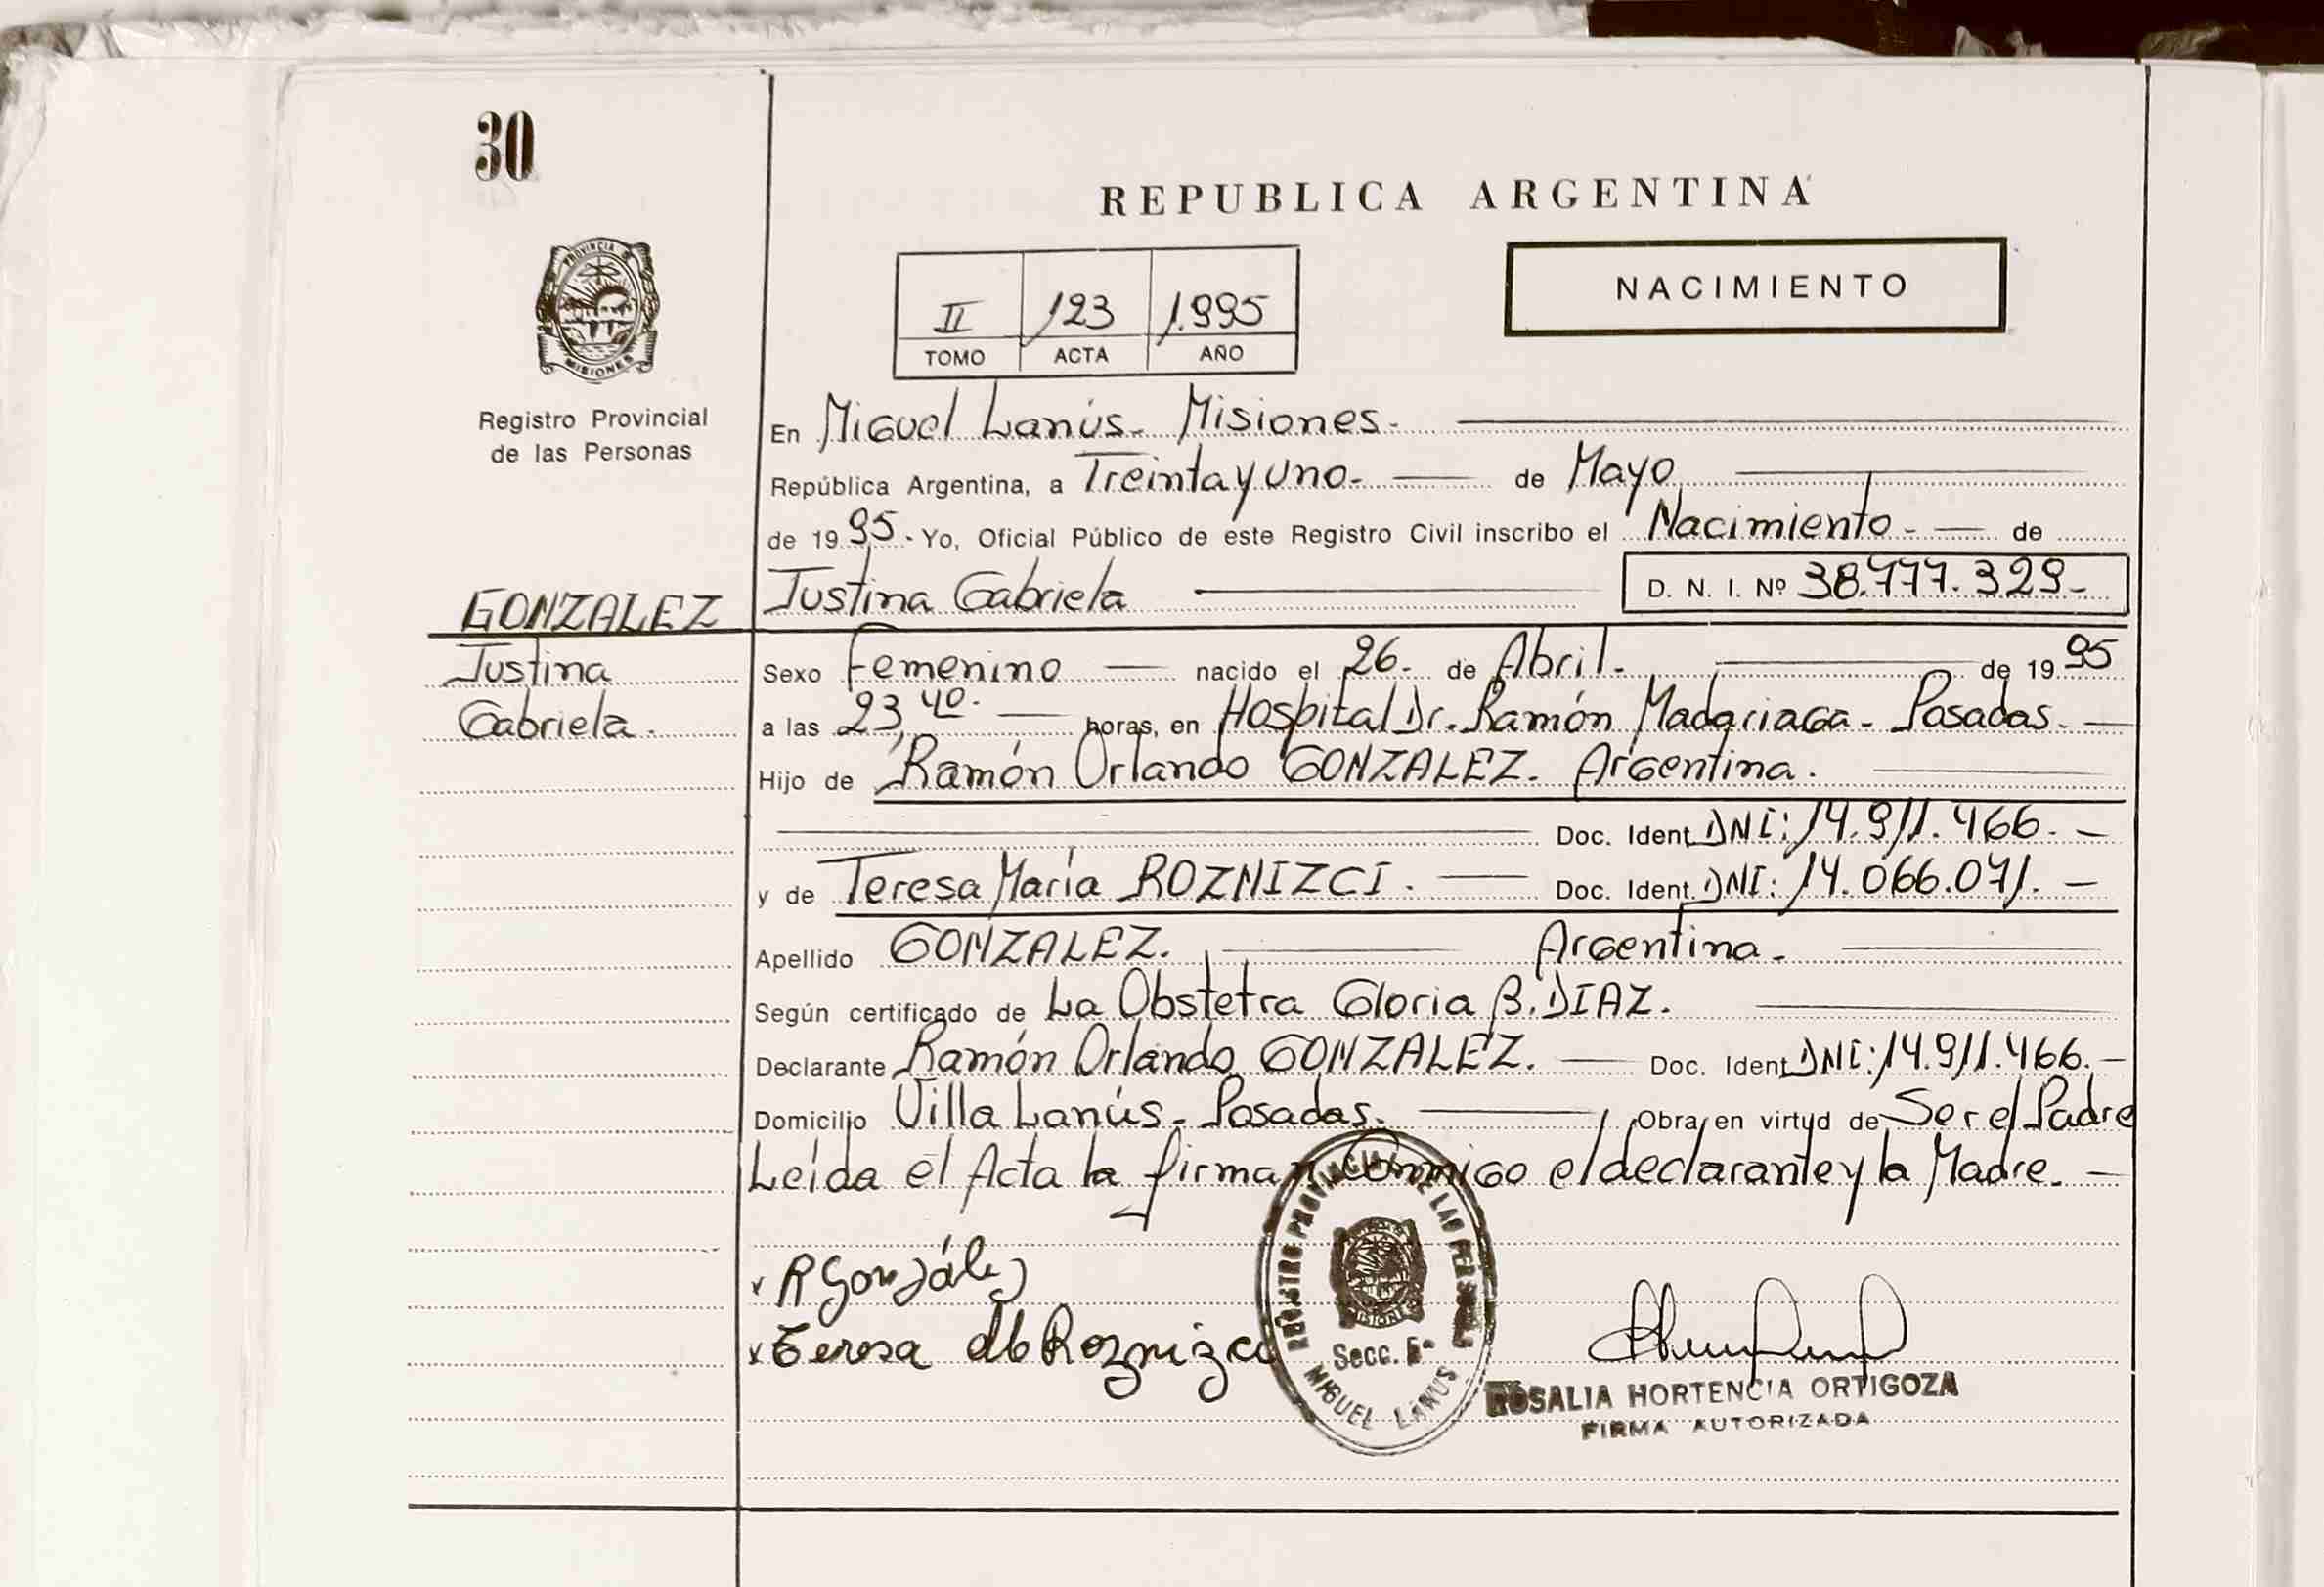 30
REPUBLICA ARGENTINA
PROVINCIA D
MISIONES
II 123 1.995
TOMO ACTA AÑO
NACIMIENTO
Registro Provincial
de las Personas
En Miguel Lanús- Misiones-
República Argentina, a Treinta y uno- de Mayo
de 19 95.- Yo, Oficial Público de este Registro Civil inscribo el Nacimiento- de
GONZALEZ Justina Gabriela D. N. I. Nº 38.777.329-
Justina Sexo Femenino nacido el 26- de Abril. de 19 95
Gabriela. a las 23,40- horas, en Hospital Dr. Ramón Madariaga- Posadas-
Hijo de Ramón Orlando GONZALEZ. Argentina.
Doc. Ident. DNI: 14.911.466.-
y de Teresa María ROZNIZCI. Doc. Ident. DNI: 14.066.071.-
Apellido GONZALEZ. Argentina-
Según certificado de La Obstetra Gloria B. DIAZ.
Declarante Ramón Orlando GONZALEZ. Doc. Ident. DNI: 14.911.466.-
Domicilio Villa Lanús- Posadas. Obra en virtud de Ser el Padre
Leída el Acta la firman Conmigo el declarante y la Madre.-
x R González
x Teresa M Roznizci
REGISTRO PROVINCIAL DE LAS PERSONAS
MISIONES
Secc. 5ª
MIGUEL LANUS
ROSALIA HORTENCIA ORTIGOZA
FIRMA AUTORIZADA